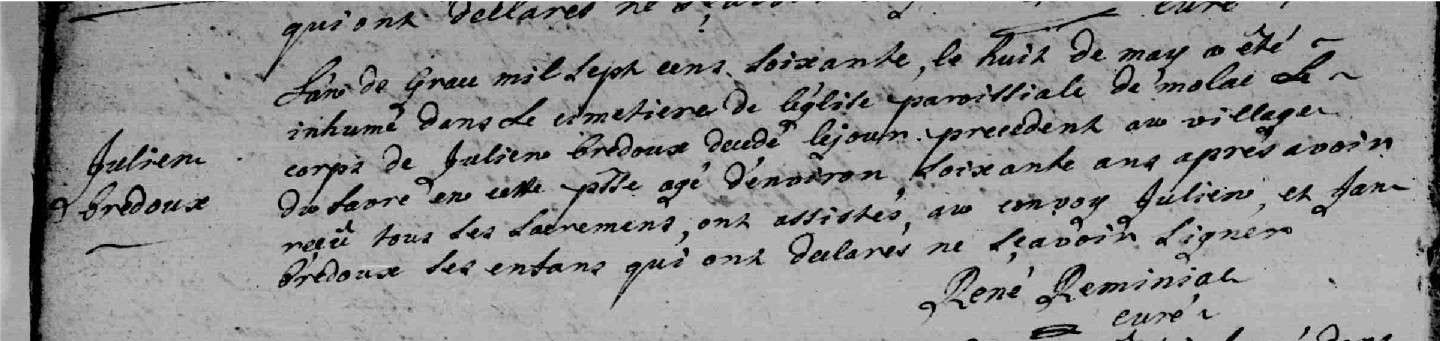 qui ont dellarés ne sçavoir
curé
L'an de Grace mil sept cens soixante, le huit de may a été
inhumé dans le cimetiere de l'église paroissiale de molac le
corps de Julien brédoux decedé le jour precedent au village
du favre en cette psse agé d'environ soixante ans après avoir
reçu tous ses sacremens, ont assistés, au convoy Julien, et Jan
brédoux ses enfans qui ont declarés ne sçavoir signer
Julien
brédoux
René Reminiac
curé